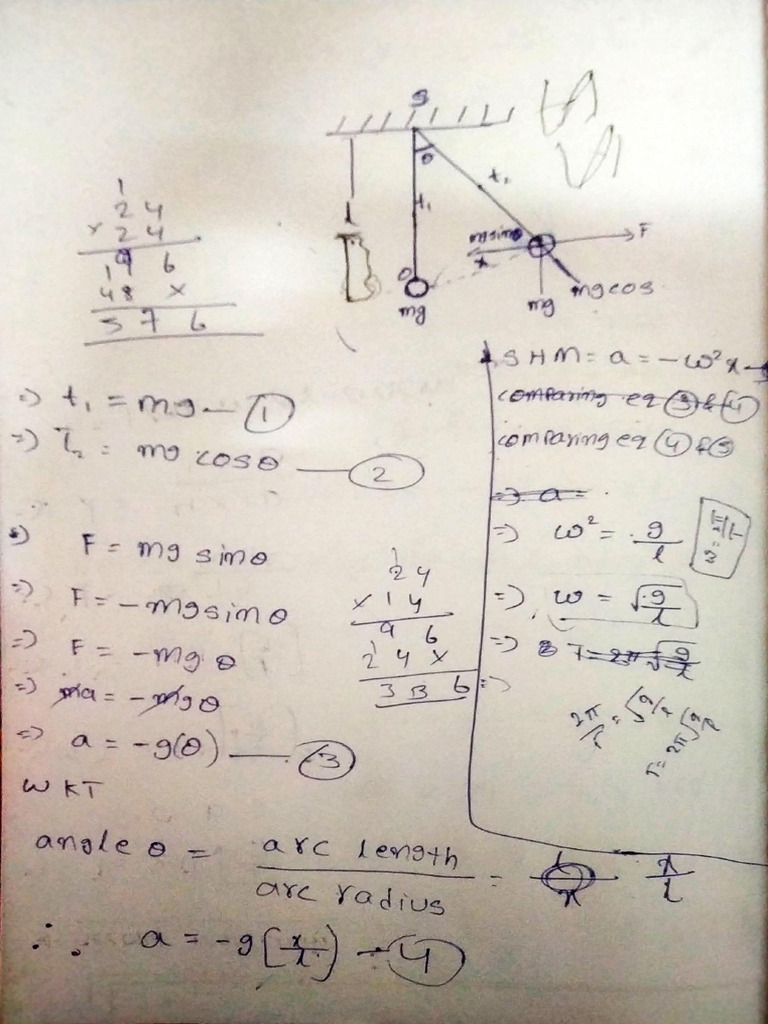 S
θ
t₁
t₂
l
mg sinθ
x
F
O
mg
mg
mg cos
1
24
× 24
1 9 6
48 ×
5 7 6
=> t₁ = mg — ①
=> T₂ = mg cosθ — ②
F = mg sinθ
=> F = -mg sinθ
=> F = -mg θ
=> ma = -mgθ
=> a = -g(θ) — ③
WKT
angle θ = arc length / arc radius = x/l
∴ a = -g [x/l] — ④
1
24
× 14
9 6
2 4 ×
3 3 6
SHM = a = -ω²x
comparing eq ③ & ④
comparing eq ④ & ⑤
=> a =
=> ω² = g/l
=> ω = √g/l
=> T = 2π √g/l
=>
2π/T = √g/l